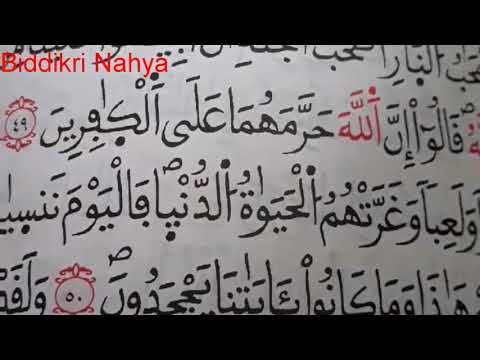 Biddikri Nahya
النَّارِ
قَالُوٓاْ إِنَّ اَللَّهَ حَرَّمَهُمَا عَلَى اَلْكَٰفِرِينَ ٤٩
وَلَعِباً وَغَرَّتْهُمُ اُلْحَيَوٰةُ اُلدُّنْيَا فَالْيَوْمَ نَنسَيٰ
هَٰذَا وَمَا كَانُواْ بِـَٔايَٰتِنَا يَجْحَدُونَ ٥٠ وَلَقَ